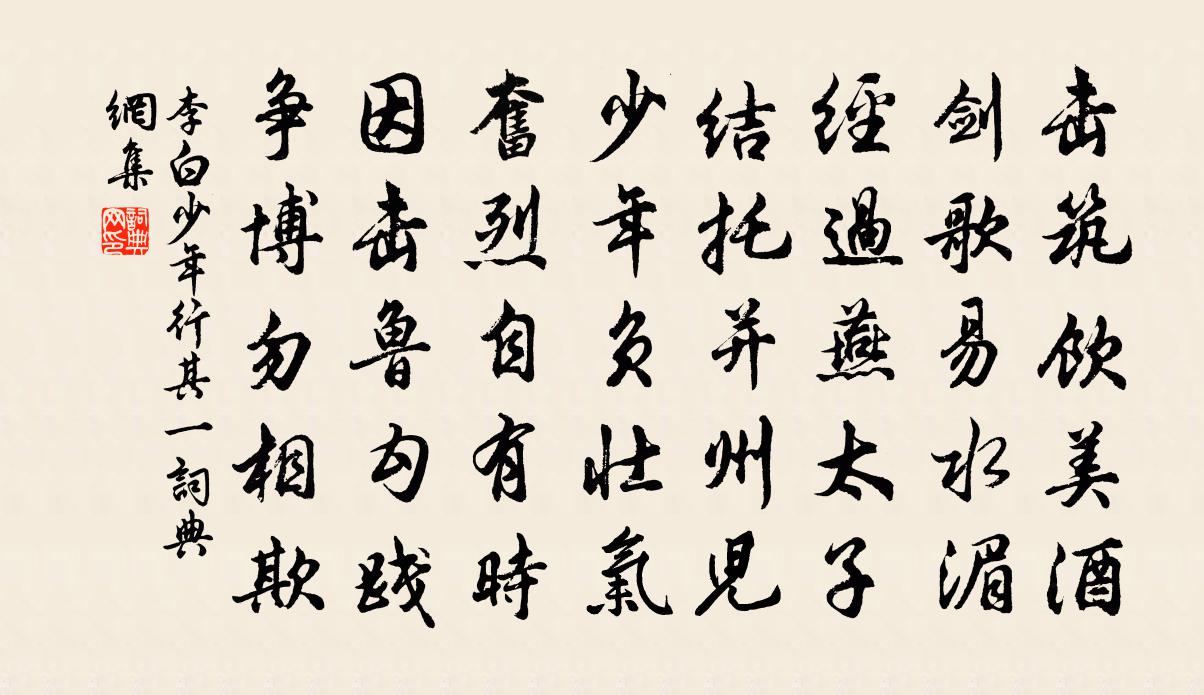 击筑饮美酒
剑歌易水湄
經過燕太子
结托并州児
少年负壮氣
奮烈自有時
因击鲁勾践
争博勿相欺
李白少年行其一詞典
網集
詞典网印